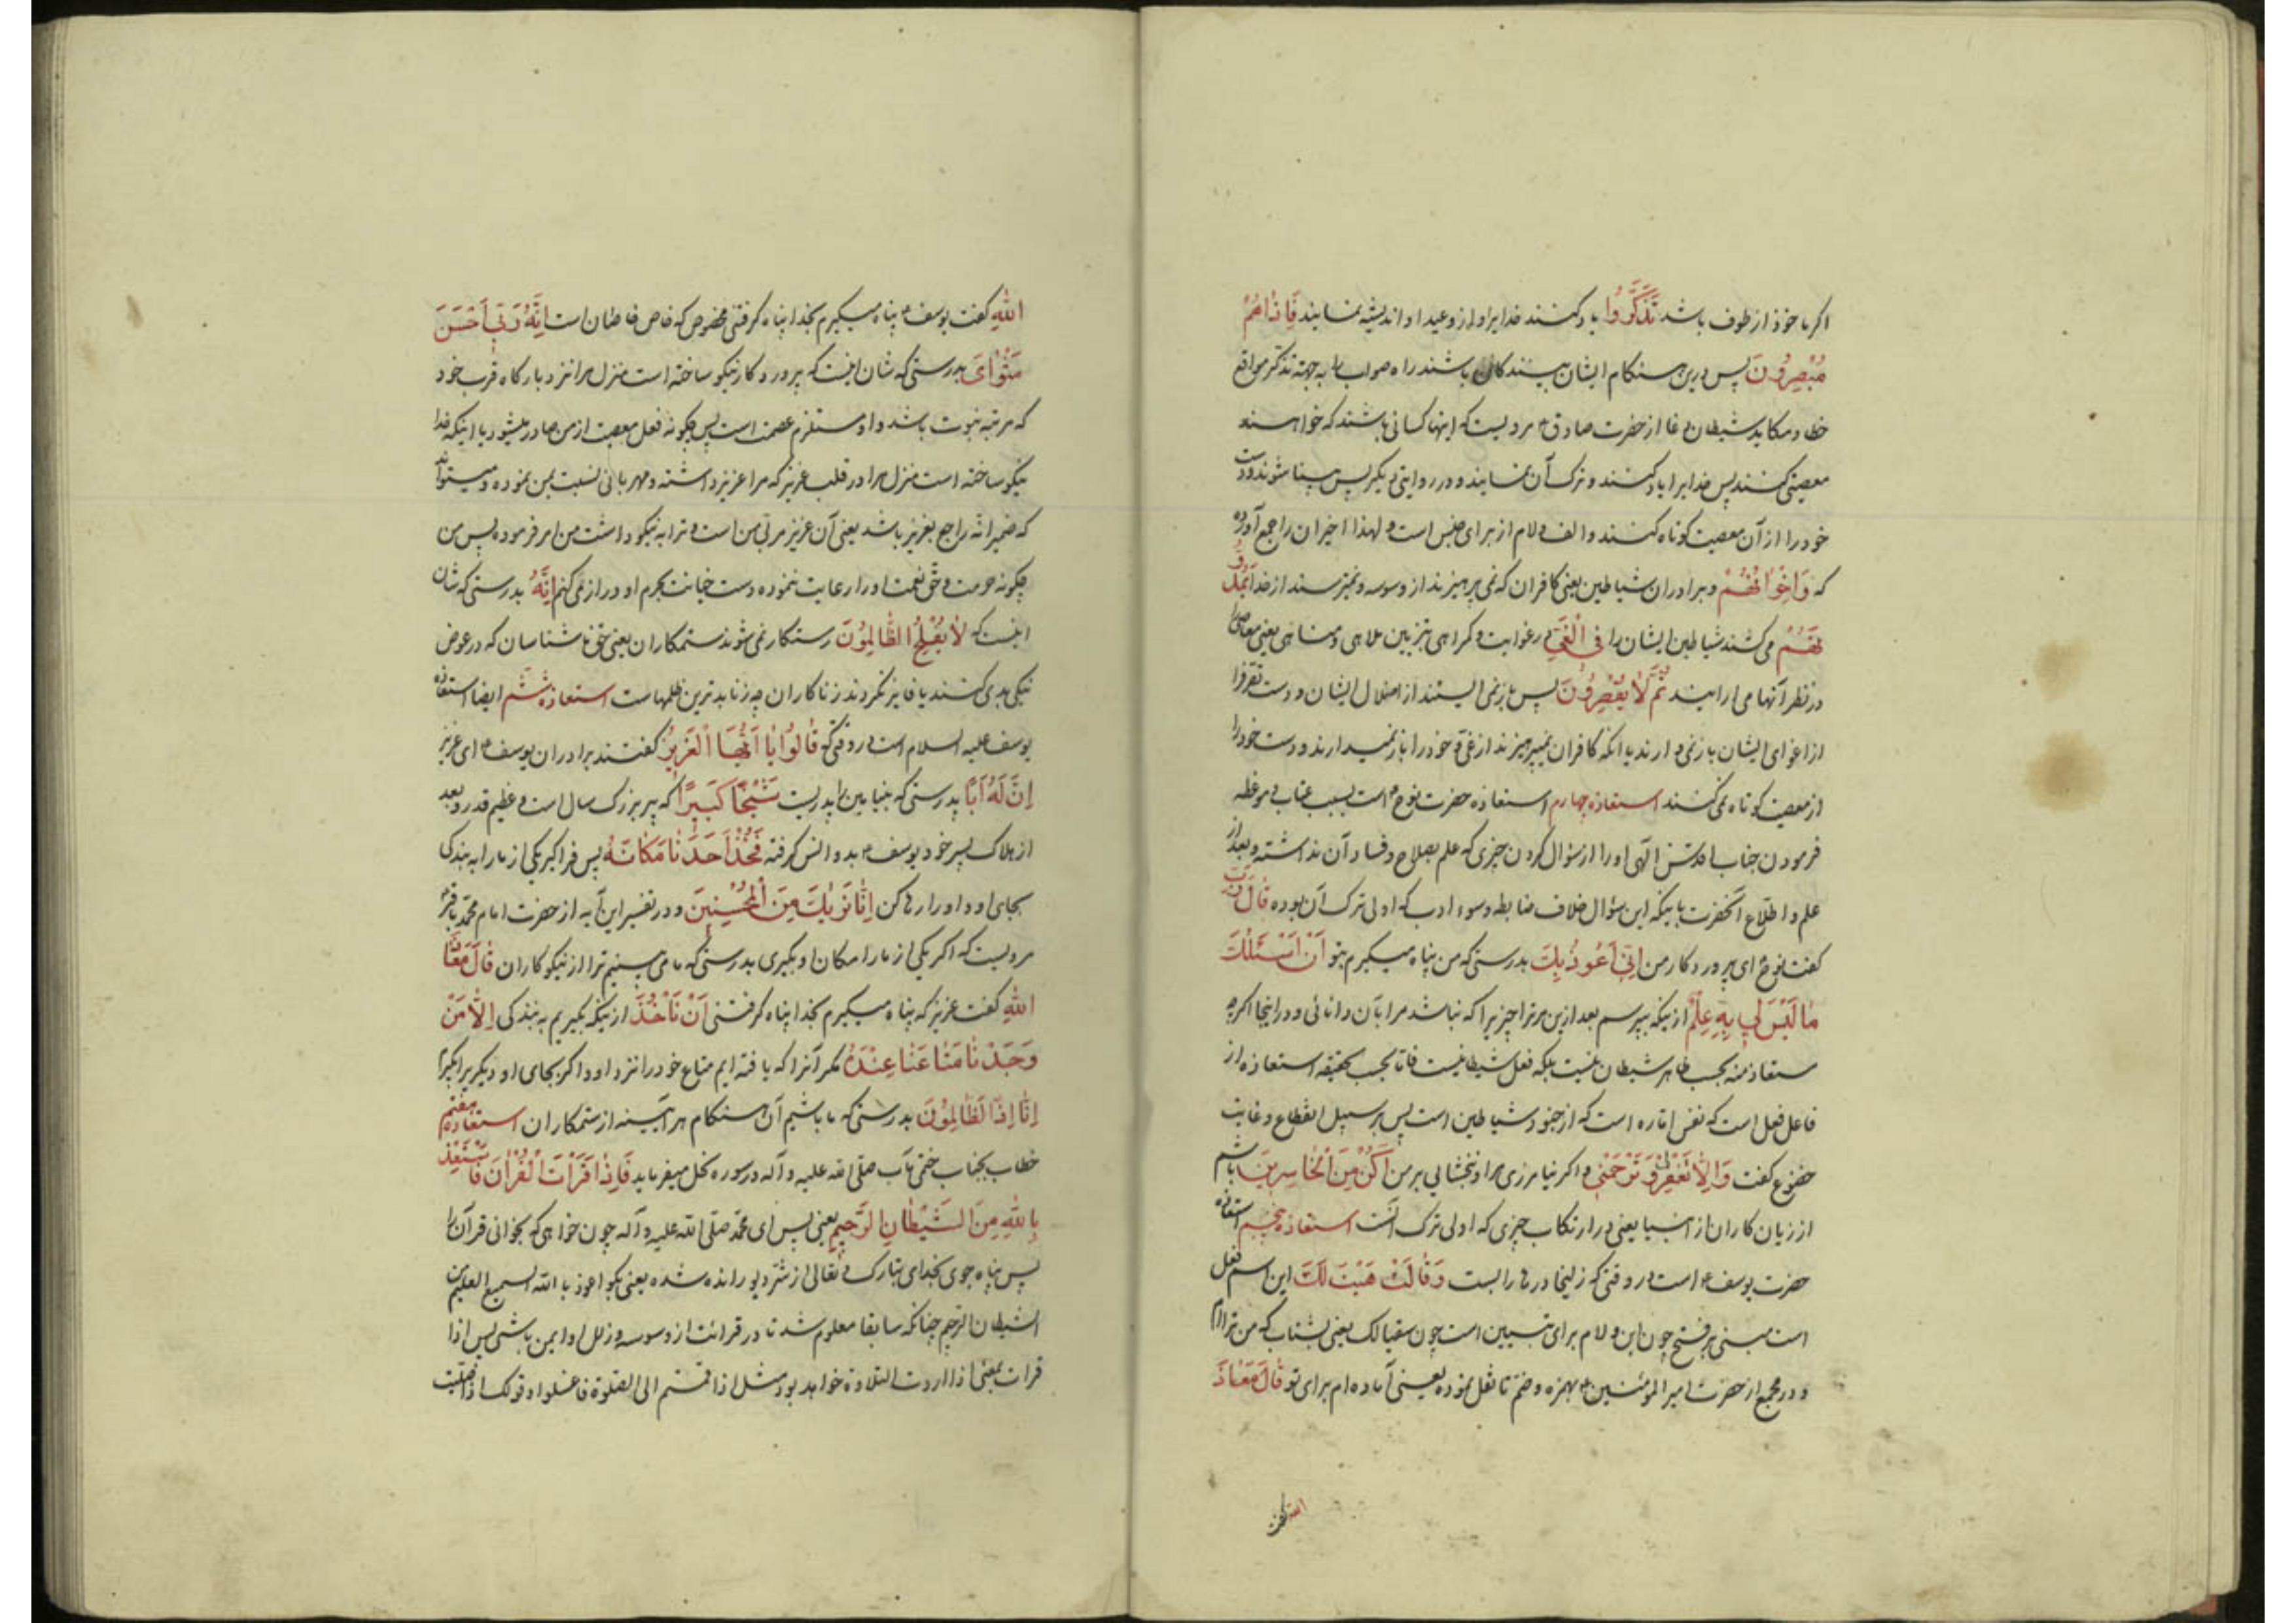 اکر ماخوذ از طوف باشد تَذَکَّرُوا یاد کنند خدایرا و از وعید او اندیشه نمایند فَاِذٰاهُمْ
مُبْصِرُونَ پس درین هنکام ایشان بینندکان باشند راه صواب را بجهة تذکر مواقع
خطا و مکاید شیطان دغا از حضرت صادق ع مرویست که اینها کسانی باشند که خواهند
معصیتی کنند پس خدایرا یاد کنند و ترک آن نمایند و در روایتی دیکر پس بینا شوند و دست
خود را از آن معصیت کوتاه کنند و الف و لام از برای جنس است و لهذا اخیران را جمع آورده
که وَاِخْوٰانُهُمْ و برادران شیاطین یعنی کافران که نمی پرهیزند از وسوسه و نمیترسند از خدا یَمُدُّو
نَهُمْ می کشند شیاطین ایشان را فِی الْغَیِّ در غوایت و کمراهی بتزیین ملاهی و مناهی یعنی معاصی را
در نظر آنها می ارایند ثُمَّ لٰا یُقْصِرُونَ پس باز نمی ایستند از اضلال ایشان و دست تقرفرا
از اغوای ایشان باز نمی دارند یا انکه کافران نمیپرهیزند از غی و خود را باز نمیدارند و دست خود را
از معصیت کوتاه نمی کنند استعاذه چهارم استعاذه حضرت نوح ع است بسبب عتاب و موعظه
فرمودن جناب اقدس الهی او را از سؤال کردن چیزی که علم بصلاح و فساد آن نداشته و بعد از
علم و اطلاع آنحضرت باینکه این سؤال خلاف ضابطه و سوء ادب که اولی ترک آن بوده قٰالَ رَبِّ
کفت نوح ع ای پروردکار من اِنّی اَعُوذُ بِكَ بدرستی که من پناه میکیرم بتو اَنْ اَسْئَلَكَ
مٰا لَیْسَ لِی بِهِ عِلْمٌ از اینکه بپرسم بعد ازین مر ترا چیزیرا که نباشد مرا بآن دانائی و در اینجا اکرچه
مستعاذ منه بحسب ظاهر شیطان نیست بلکه فعل شیطانیست فاما بحسب حقیقه استعاذه از
فاعل فعل است که نفس اماره است که از جنود شیاطین است پس بر سبیل انقطاع و غایت
خضوع کفت وَاِلّٰا تَغْفِرْ لی وَتَرْحَمْنی و اکر نیامرزی مرا و نبخشایی بر من اَکُنْ مِنَ الْخٰاسِرینَ باشم
از زیان کاران از اشیا یعنی در ارتکاب چیزی که اولی ترک آنست استعاذه پنجم استعاذه
حضرت یوسف ع است در وقتی که زلیخا درها را بست وَقٰالَتْ هَیْتَ لَكَ این اسم فعل
است مبنی بر فتح چون این و لام برای تبیین است چون سقیا لک یعنی بشتاب که من ترا ام
و در مجمع از حضرت امیر المؤمنین ع بهمزه و ضم تا نقل نموده یعنی آماده ام برای تو قٰالَ مَعٰاذَ
الله کفت
اللّٰهِ کفت یوسف ع پناه میکیرم بخدا پناه کرفتنی مخصوص که خاص خاصان است اِنَّهُ رَبّی اَحْسَنَ
مَثْوٰایَ بدرستی که شان اینست که پروردکار نیکو ساخته است منزل مرا نزد بارکاه قرب خود
که مرتبه نبوت باشد و او مستلزم عصمت است پس چکونه فعل معصیت از من صادر میشود با اینکه خدا
نیکو ساخته است منزل مرا در قلب عزیز که مرا عزیز داشته و مهربانی نسبت بمن نموده و میتواند
که ضمیر انه راجع بعزیز باشد یعنی آن عزیز مربی من است و ترا به نیکو داشت من امر فرموده پس من
چکونه حرمت و حق نعمت او را رعایت ننموده دست خیانت بحرم او دراز می کنم اِنَّهُ بدرستی که شان
اینست که لٰا یُفْلِحُ الظّٰالِمُونَ رستکار نمی شوند ستمکاران یعنی حق ناشناسان که در عوض
نیکی بدی کنند یا فایز نکردند زناکاران چه زنا بدترین ظلمهاست استعاذه ششم ایضا استعاذه
یوسف علیه السلام است در وقتی که قٰالُوا یٰا اَیُّهَا الْعَزیزُ کفتند برادران یوسف ع ای عزیز
اِنَّ لَهُ اَبًا بدرستی که بنیامین را پدریست شَیْخًا کَبیرًا که پیر بزرک سال است و عظیم قدر و بعد
از هلاک پسر خود یوسف ع بدو انس کرفته فَخُذْ اَحَدَنٰا مَکٰانَهُ پس فراکیر یکی از ما را به بندکی
بجای او و او را رها کن اِنّٰا نَرٰیكَ مِنَ الْمُحْسِنینَ و در تفسیر این آیه از حضرت امام محمد باقر ع
مرویست که اکر یکی از ما را مکان او بکیری بدرستی که ما می بینیم ترا از نیکوکاران قٰالَ مَعٰاذَ
اللّٰهِ کفت عزیز که پناه میکیرم بخدا پناه کرفتنی اَنْ نَأْخُذَ از اینکه بکیریم به بندکی اِلّٰا مَنْ
وَجَدْنٰا مَتٰاعَنٰا عِنْدَهُ مکر آنرا که یافته ایم متاع خود را نزد او و اکر بجای او دیکریرا بکیرم
اِنّٰا اِذًا لَظٰالِمُونَ بدرستی که ما باشیم آن هنکام هر آینه از ستمکاران استعاذه هفتم
خطاب بجناب ختمی مآب صلی الله علیه و آله در سوره نحل میفرماید فَاِذٰا قَرَأْتَ الْقُرْآنَ فَاسْتَعِذْ
بِاللّٰهِ مِنَ الشَّیْطٰانِ الرَّجیمِ یعنی پس ای محمد صلی الله علیه و آله چون خواهی که بخوانی قرآن را
پس پناه جوی بخدای تبارک و تعالی از شر دیو رانده شده یعنی بکو اعوذ بالله السمیع العلیم من
الشیطان الرجیم چنانکه سابقا معلوم شد تا در قرائت از وسوسه و زلل او ایمن باشی پس اذا
قرات بمعنی اذا اردت التلاوة خواهد بود مثل اذا قمتم الی الصلوة فاغسلوا و قولک اذا صلیت